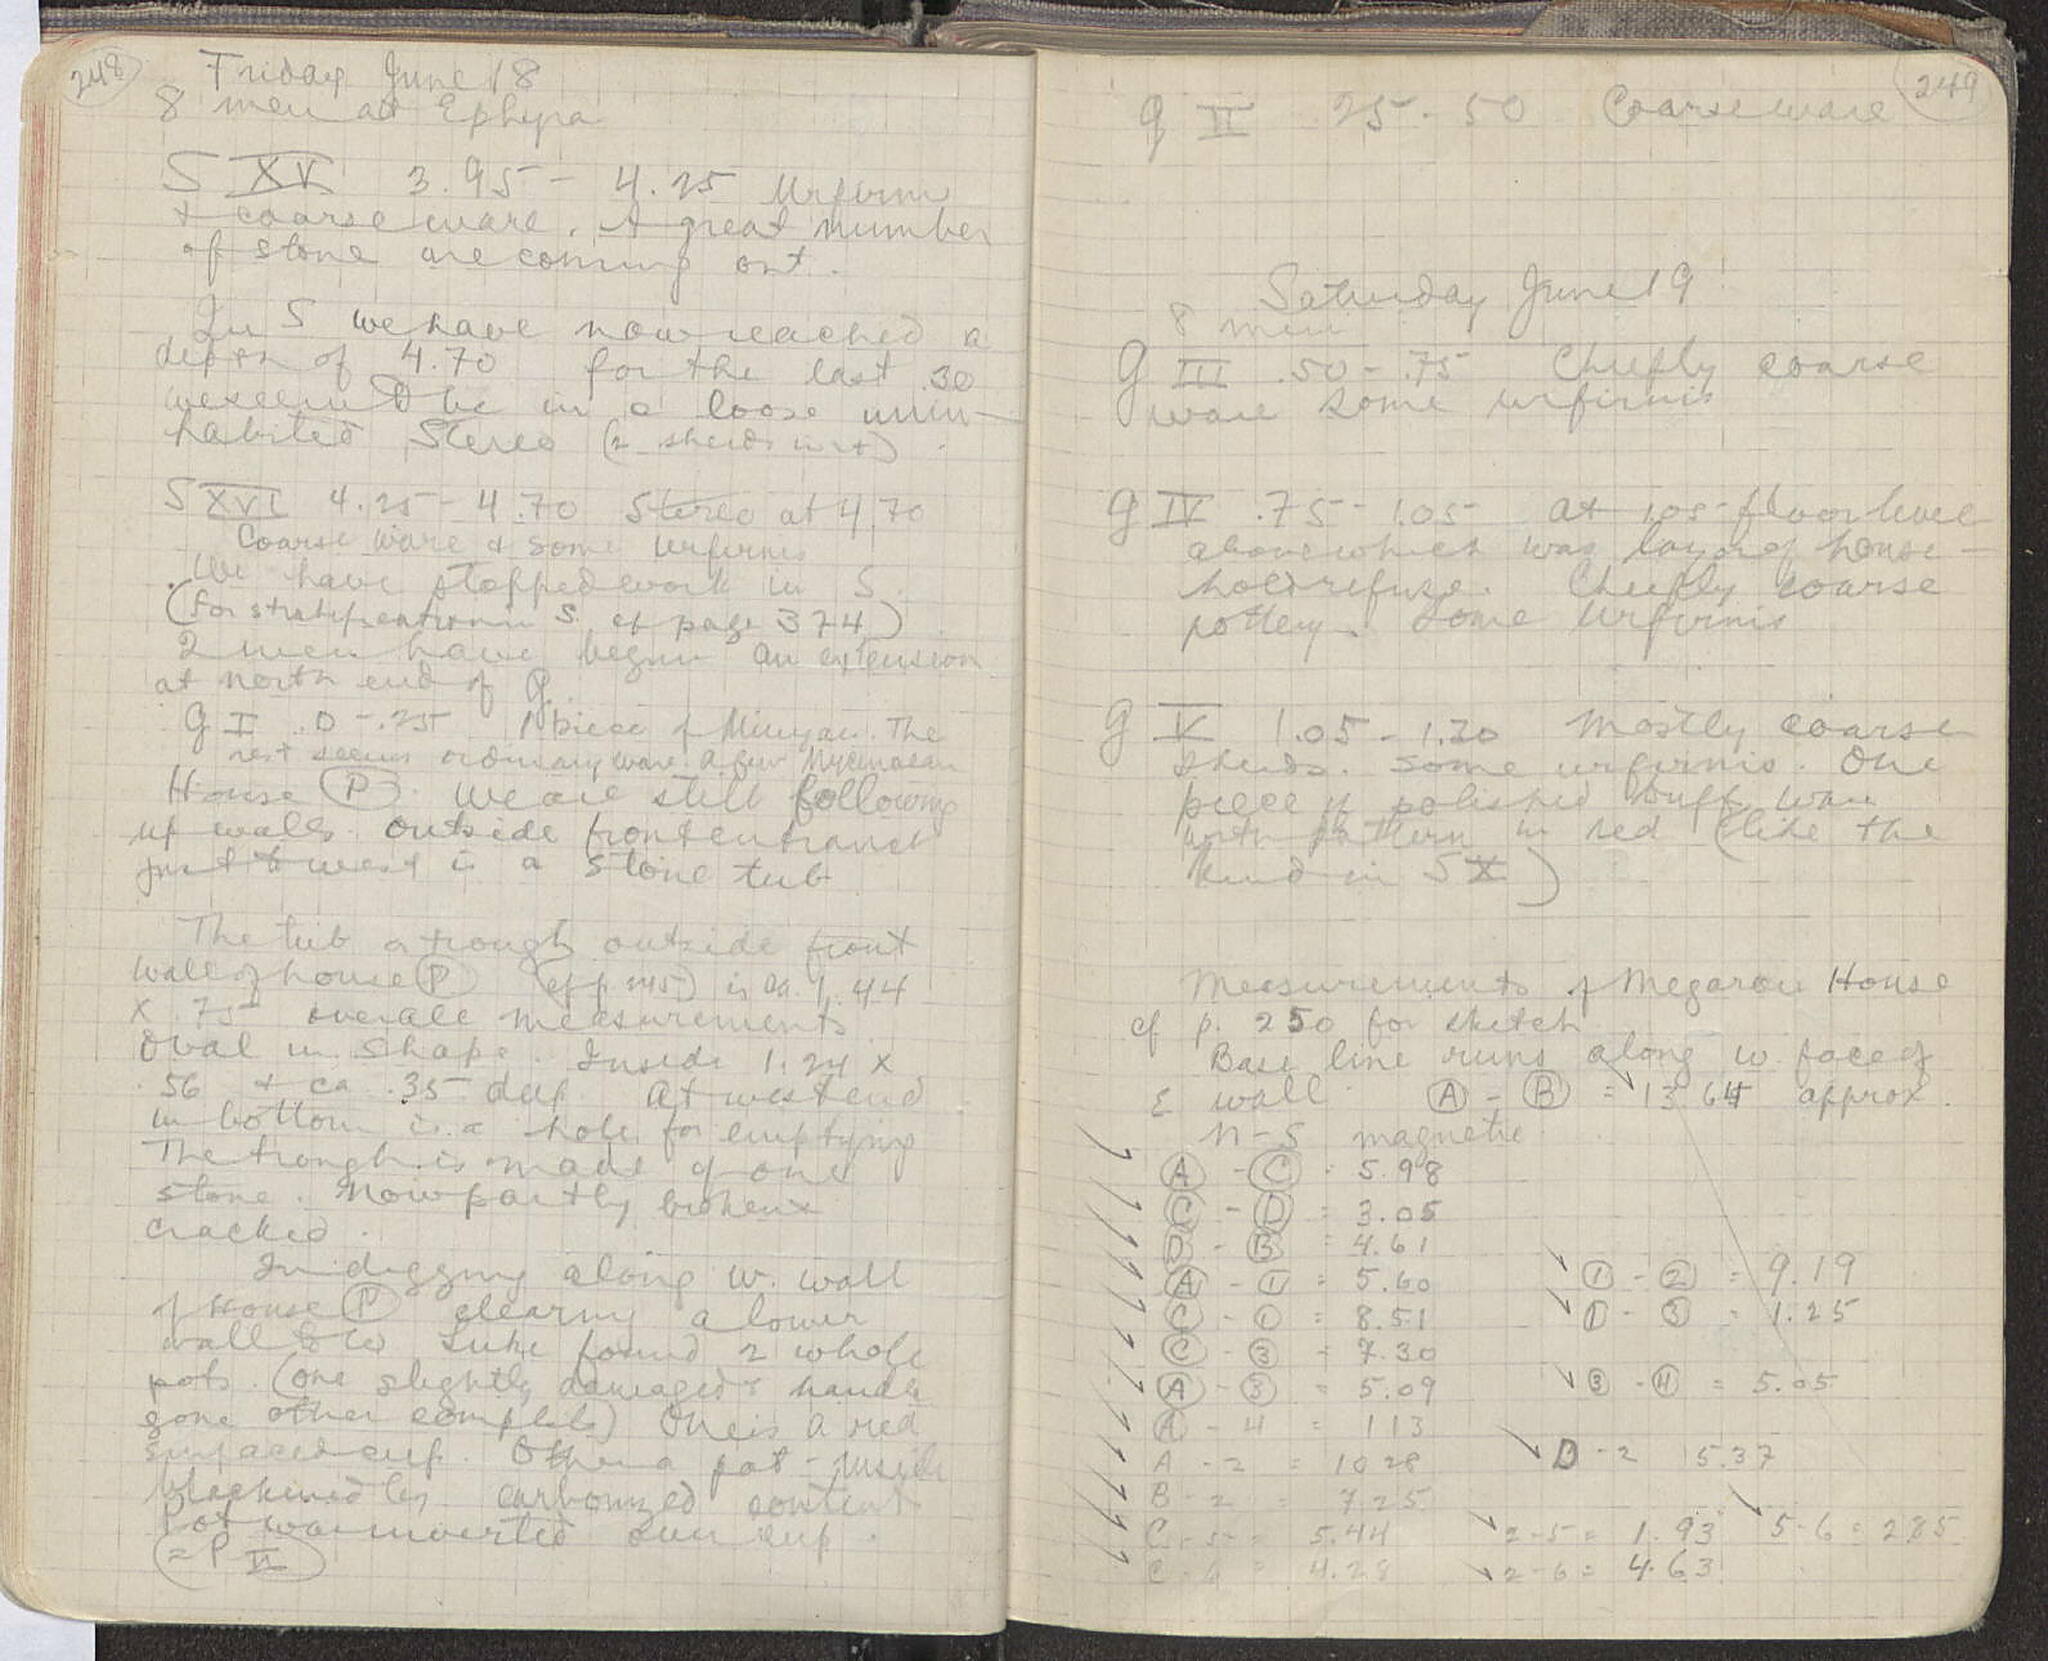 248
Friday June 18
8 men at Ephyra
S XV 3.95 - 4.25 Urfirnis
+ coarse ware. A great number
of stone are coming out.
In S we have now reached a
depth of 4.70 for the last .30
we seem to be in a loose unin-
habited Stereo (2 sherds in it)
S XVI 4.25 - 4.70 Stereo at 4.70
Coarse ware & some Urfirnis
We have stopped work in S.
(for stratification in S. cf page 374)
2 men have begun an extension
at north end of G.
G I .0 - .25 1 piece of Minyan. The
rest seems ordinary ware. A few Mycenaean
House (P). We are still following
up walls. outside front entrance
just to west is a stone tub
The tub or trough outside front
wall of house (P) (cf p. 245) is ca. 1.44
x .75 overall measurements
Oval in shape. Inside 1.24 x
.56 + ca .35 deep. At west end
in bottom is a hole for emptying
The trough is made of one
stone. Now partly broken &
cracked.
In digging along w. wall
of House (P) clearing a lower
wall to W found 2 whole
pots. (one slightly damaged & handle
gone other complete) One is a red
surfaced cup. Other a pot - inside
blackened by carbonized content
Pot was inverted over cup.
= P II
249
G II .25 - 50 Coarse ware
Saturday June 19
8 men
G III .50 - .75 Chiefly coarse
ware some urfirnis
G IV .75 - 1.05 At 1.05 floor level
above which was layer of house-
hold refuse. Chiefly coarse
pottery. Some Urfirnis
G V 1.05 - 1.20 Mostly coarse
sherds. Some urfirnis. One
piece of polished buff ware
with pattern in red (like the
kind in S X)
Measurements of Megaron House
cf p. 250 for sketch
Base line runs along w. face of
E wall (A) - (B) = 13 64 approx.
N-S magnetic
(A) - (C) = 5.98
(C) - (D) = 3.05
D - (B) = 4.61
(A) - (1) = 5.60 (1) - (2) = 9.19
(C) - (1) = 8.51 (1) - (3) = 1.25
(C) - (3) = 7.30
(A) - (3) = 5.09 (3) - (4) = 5.05
(A) - 4 = 113
A - 2 = 10 28 D - 2 15.37
B - 2 = 7.25
C - 5 = 5.44 2-5 = 1.93 5-6 = 285
C - 6 = 4.28 2-6 = 4.63